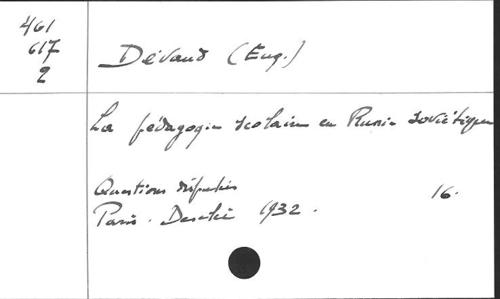 461
617
2
Dévaud (Eug.)
La pédagogie scolaire en Russie soviétique
Questions disputées
16.
Paris. Desclée 1932.